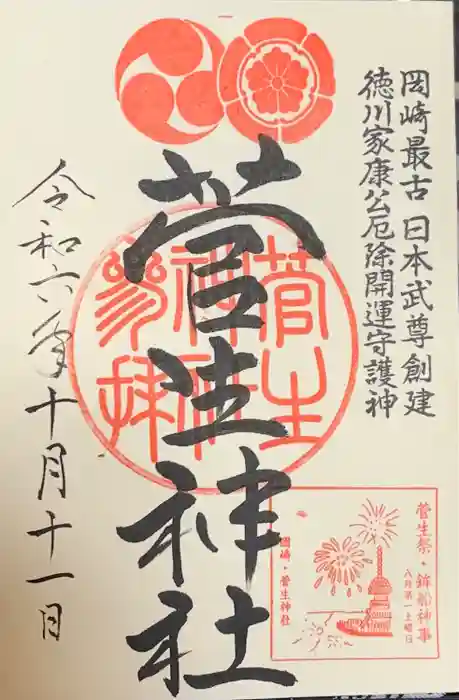 岡崎最古 日本武尊創建
徳川家康公厄除開運守護神
菅生神社
令和六年十月十一日
菅生神社参拝
菅生祭・鉾船神事
八月第一土曜日
岡崎・菅生神社